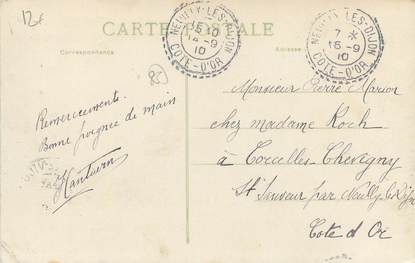 12€
CARTE POSTALE
Correspondance
Adresse
NEUILLY-LES-DIJON
15-10
15-9
10
COTE-D'OR
NEUILLY-LES-DIJON
7 *
15-9
10
COTE-D'OR
85
Remerciements.
Bonne poignée de main
Monsieur Pierre Marion
chez madame Koch
à Corcelles-Chevigny
St Sauveur par Neuilly les Dijon
Cote d'Or